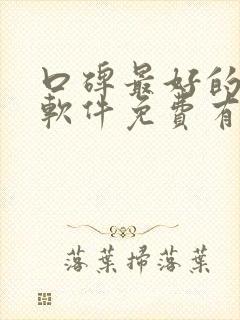 口碑最好的
軟件免費有
落葉掃落葉